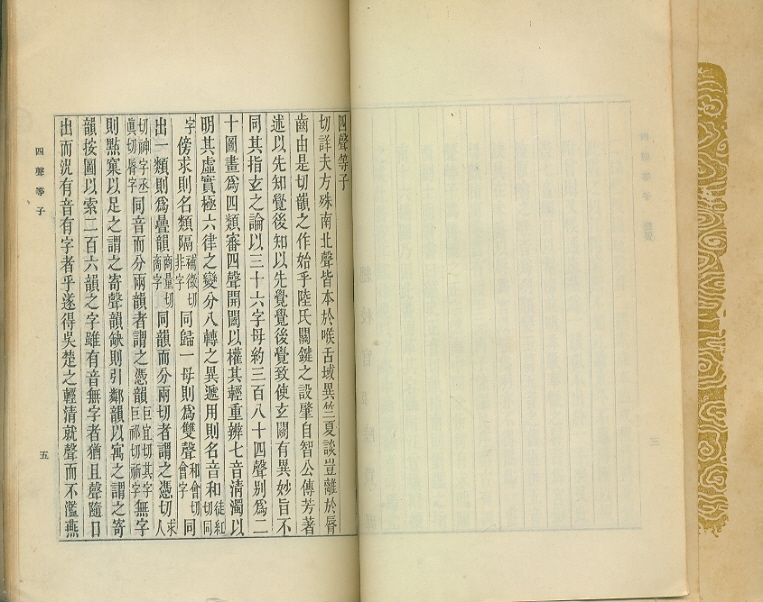 四聲等子
切詳夫方殊南北聲皆本於喉舌域異竺夏談豈離於脣
齒由是切韻之作始乎陸氏關鍵之設肇自智公傳芳著
述以先知覺後知以先覺覺後覺致使玄關有異妙旨不
同其指玄之論以三十六字母約三百八十四聲別爲二
十圖畫爲四類審四聲開闔以權其輕重辨七音清濁以
明其虛實極六律之變分八轉之異遞用則名音和徒紅切同
字傍求則名類隔補微切非字同歸一母則爲雙聲和會切會字同
出一類則爲疊韻商量切商字同韻而分兩切者謂之憑切求人
切神字丞眞切脣字同音而分兩韻者謂之憑韻巨宜切其字巨祁切祈字無字
則點窠以足之謂之寄聲韻缺則引鄰韻以寓之謂之寄
韻按圖以索二百六韻之字雖有音無字者猶且聲隨口
出而況有音有字者乎遂得吳楚之輕清就聲而不濫燕
四聲等子
五